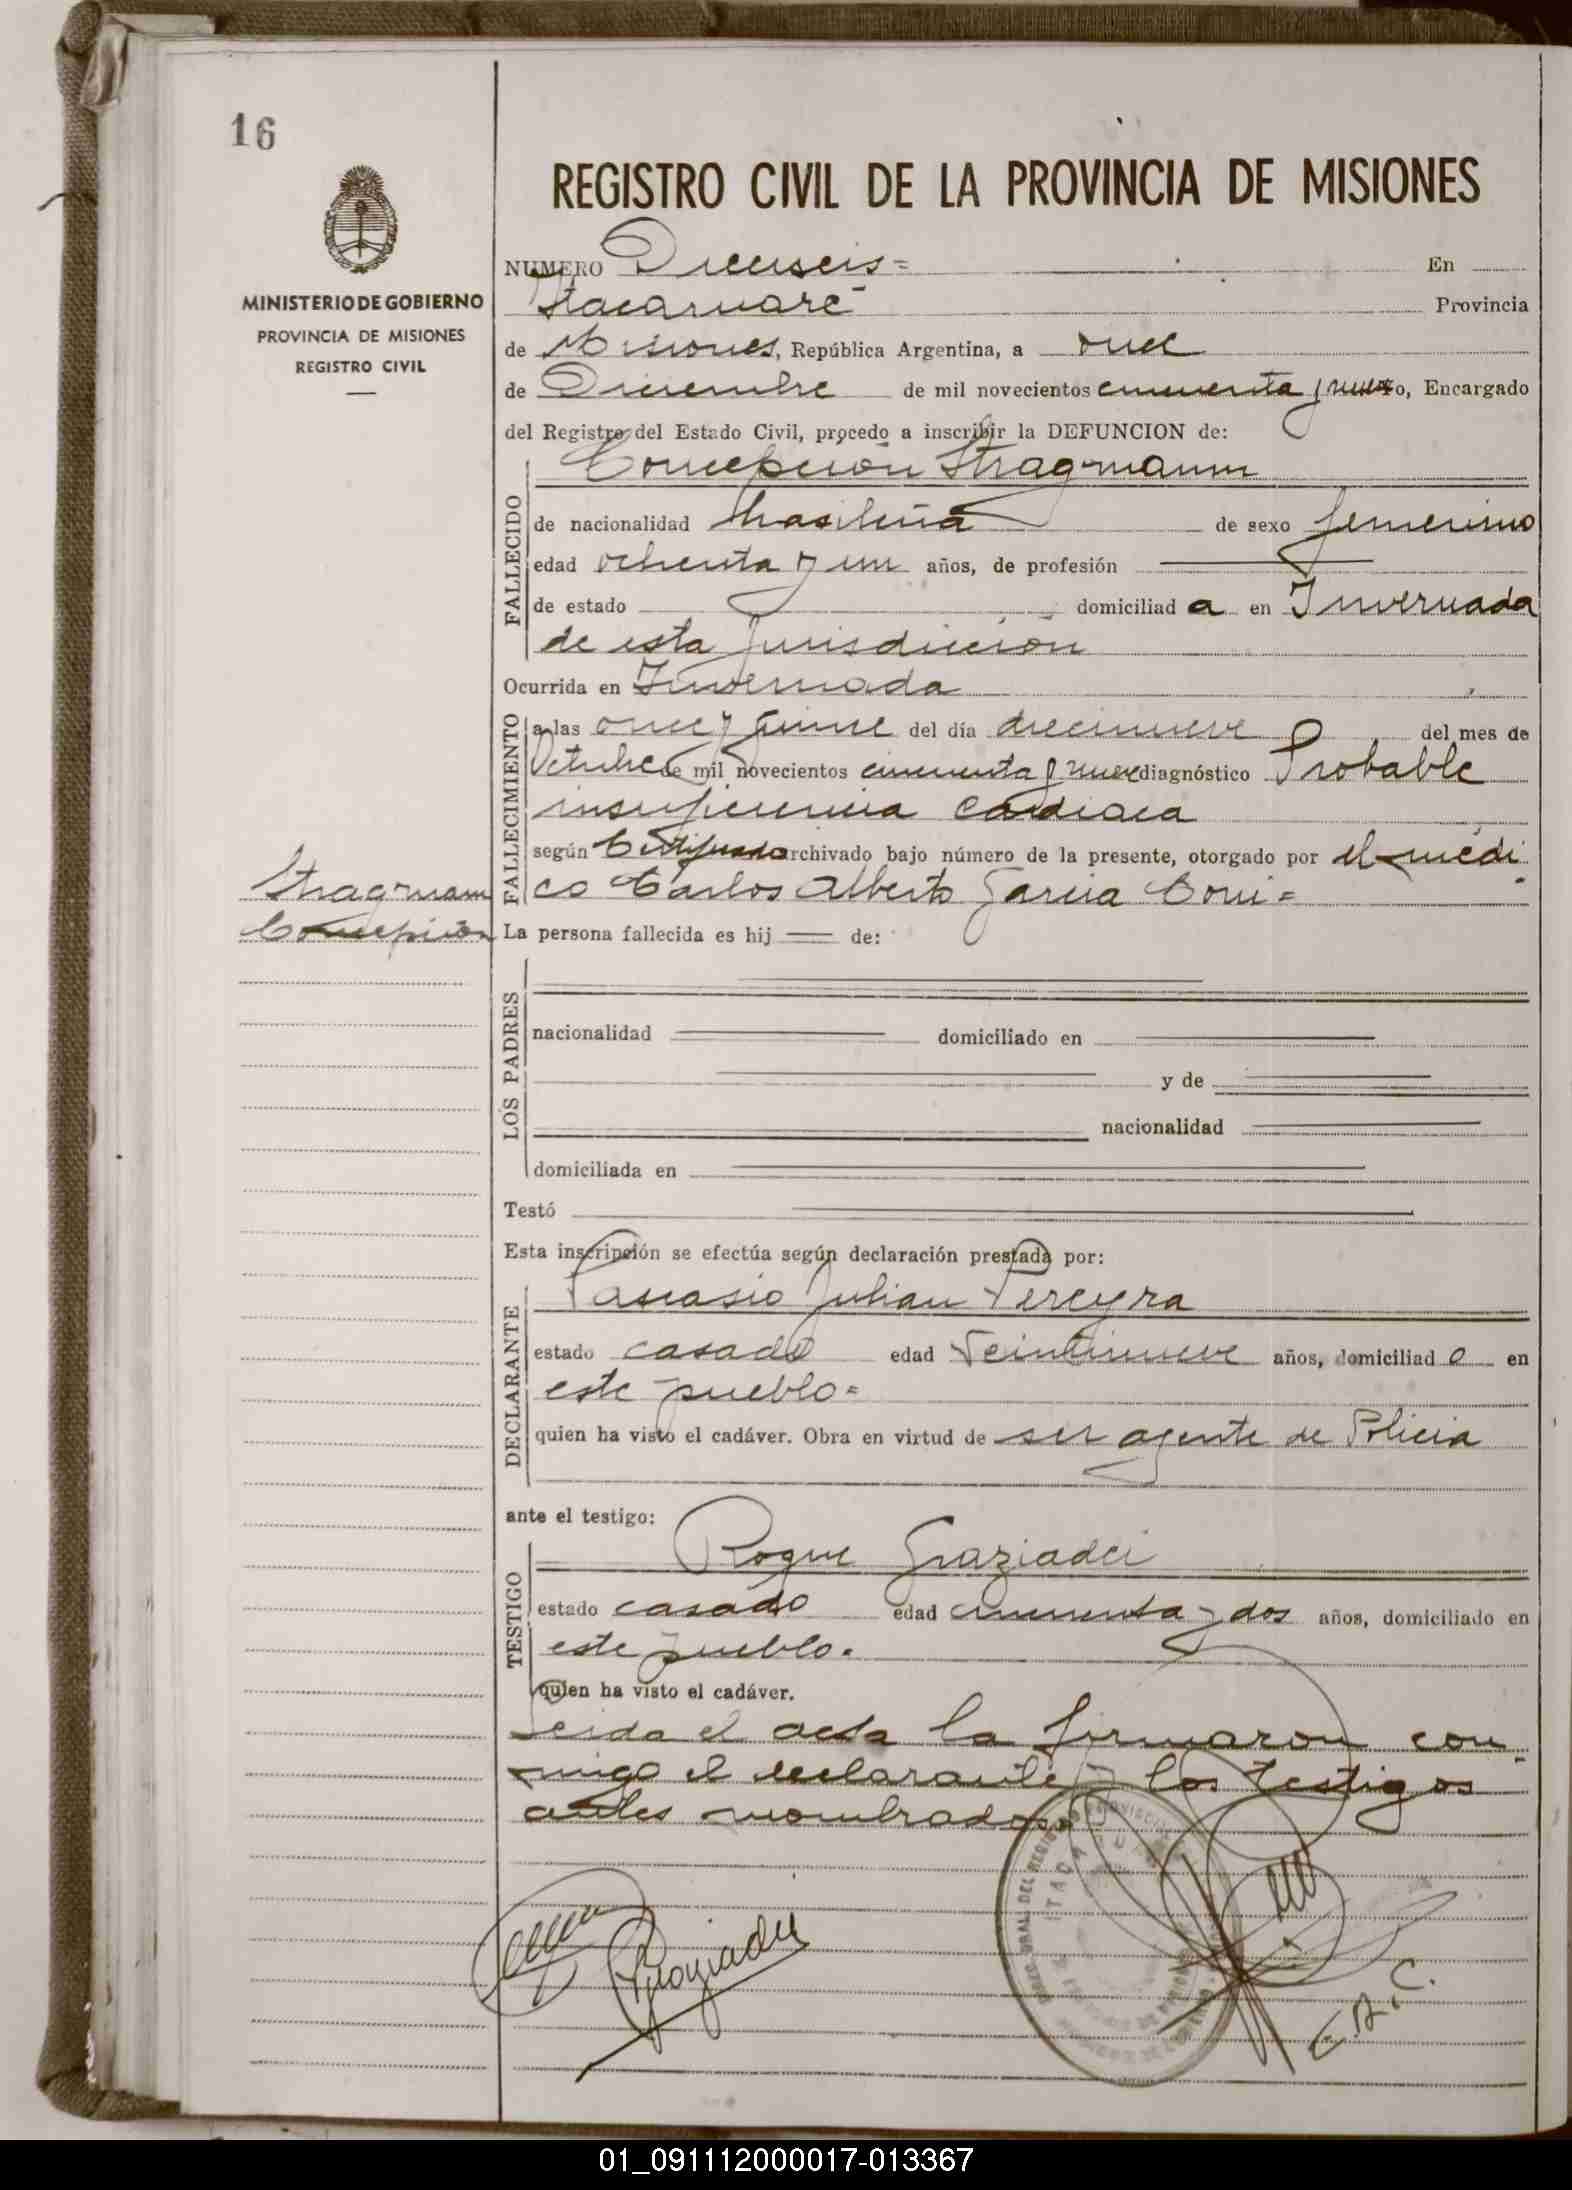 16
MINISTERIO DE GOBIERNO
PROVINCIA DE MISIONES
REGISTRO CIVIL
REGISTRO CIVIL DE LA PROVINCIA DE MISIONES
NUMERO Dieciseis = En
Itacaruaré Provincia
de Misiones, República Argentina, a once
de Diciembre de mil novecientos cincuenta y nueve, Encargado
del Registro del Estado Civil, procedo a inscribir la DEFUNCION de:
Concepción Stragmann
FALLECIDO
de nacionalidad brasileña de sexo femenino
edad ochenta y un años, de profesión
de estado domiciliad a en Invernada
de esta Jurisdiccion
Ocurrida en Invernada
FALLECIMIENTO
a las once y quince del día diecinueve del mes de
Octubre de mil novecientos cincuenta y nueve diagnóstico Probable
insuficiencia cardiaca
según Certificado archivado bajo número de la presente, otorgado por el médi
co Carlos Alberto Garcia =
Stragmann
Concepción
La persona fallecida es hij de:
LOS PADRES
nacionalidad domiciliado en
y de
nacionalidad
domiciliada en
Testó
Esta inscripción se efectúa según declaración prestada por:
DECLARANTE
Pascasio Julian Pereyra
estado casado edad Veintinueve años, domiciliad o en
este pueblo =
quien ha visto el cadáver. Obra en virtud de ser agente de Policia
ante el testigo:
TESTIGO
Roque Graziadei
estado casado edad cincuenta y dos años, domiciliado en
este pueblo.
quien ha visto el cadáver.
Leida el acta la firmaron con
migo el declarante y los testigos
antes nombrados.
Graziadei
01_091112000017-013367